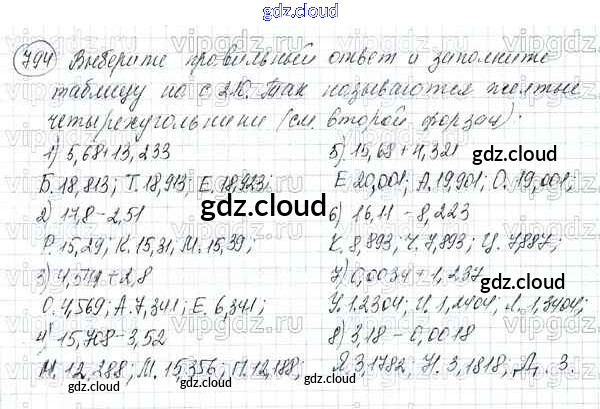 gdz.cloud
gdz.cloud
794 Выберите правильный ответ и заполните
таблицу на с 210. Так называются жёлтые
четырехугольники (см. второй форзац):
1) 5,68+13,233
5) 15,68+4,321
gdz.cloud
Б.18,813; Т.18,913; Е.18,923;
Е 20,001; А.19,901; О.19,001;
gdz.cloud
2) 17,8-2,51
6) 16,11-8,223
Р.15,29; К.15,31; М.15,39;
К. 8,893; Ч.7,893; Ц.7,887;
3) 4,541+2,8
7) 0,0034+1,237
О.4,569; А.7,341; Е. 6,341;
У.1,2304; И.1,2404; Л.1,3404;
4) 15,708-3,52
8) 3,18-0,0018
gdz.cloud
М.12,288; М.15,356; П.12,188;
Я 3,1782; Н.3,1818; Д. 3.
gdz.cloud